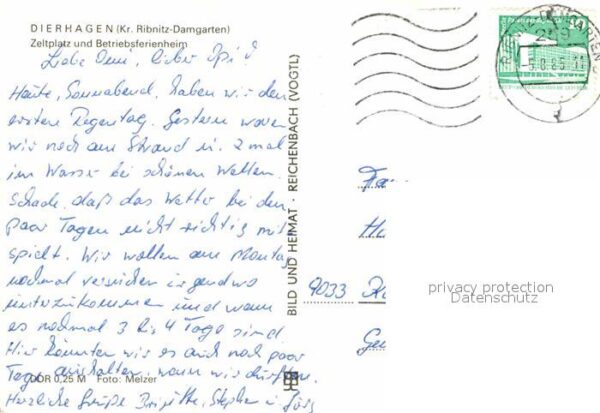 DIERHAGEN (Kr. Ribnitz-Damgarten)
Zeltplatz und Betriebsferienheim
Liebe Omi, lieber Opi!
Heute, Sonnabend, haben wir den
ersten Regentag. Gestern waren
wir noch am Strand u. 2 mal
im Wasser bei schönen Wellen.
Schade, daß das Wetter bei den
paar Tagen nicht richtig mit
spielt. Wir wollen am Montag
nochmal versuchen irgendwo
unterzukommen und wenn
es nochmal 3 bis 4 Tage sind.
Hier könnten wir es auch noch paar
Tage aushalten, wenn wir dürften.
Herzliche Grüße Brigitte, Stephan u.
DDR 0,25 M Foto: Melzer
BILD UND HEIMAT · REICHENBACH (VOGTL)
9033
privacy protection
Datenschutz